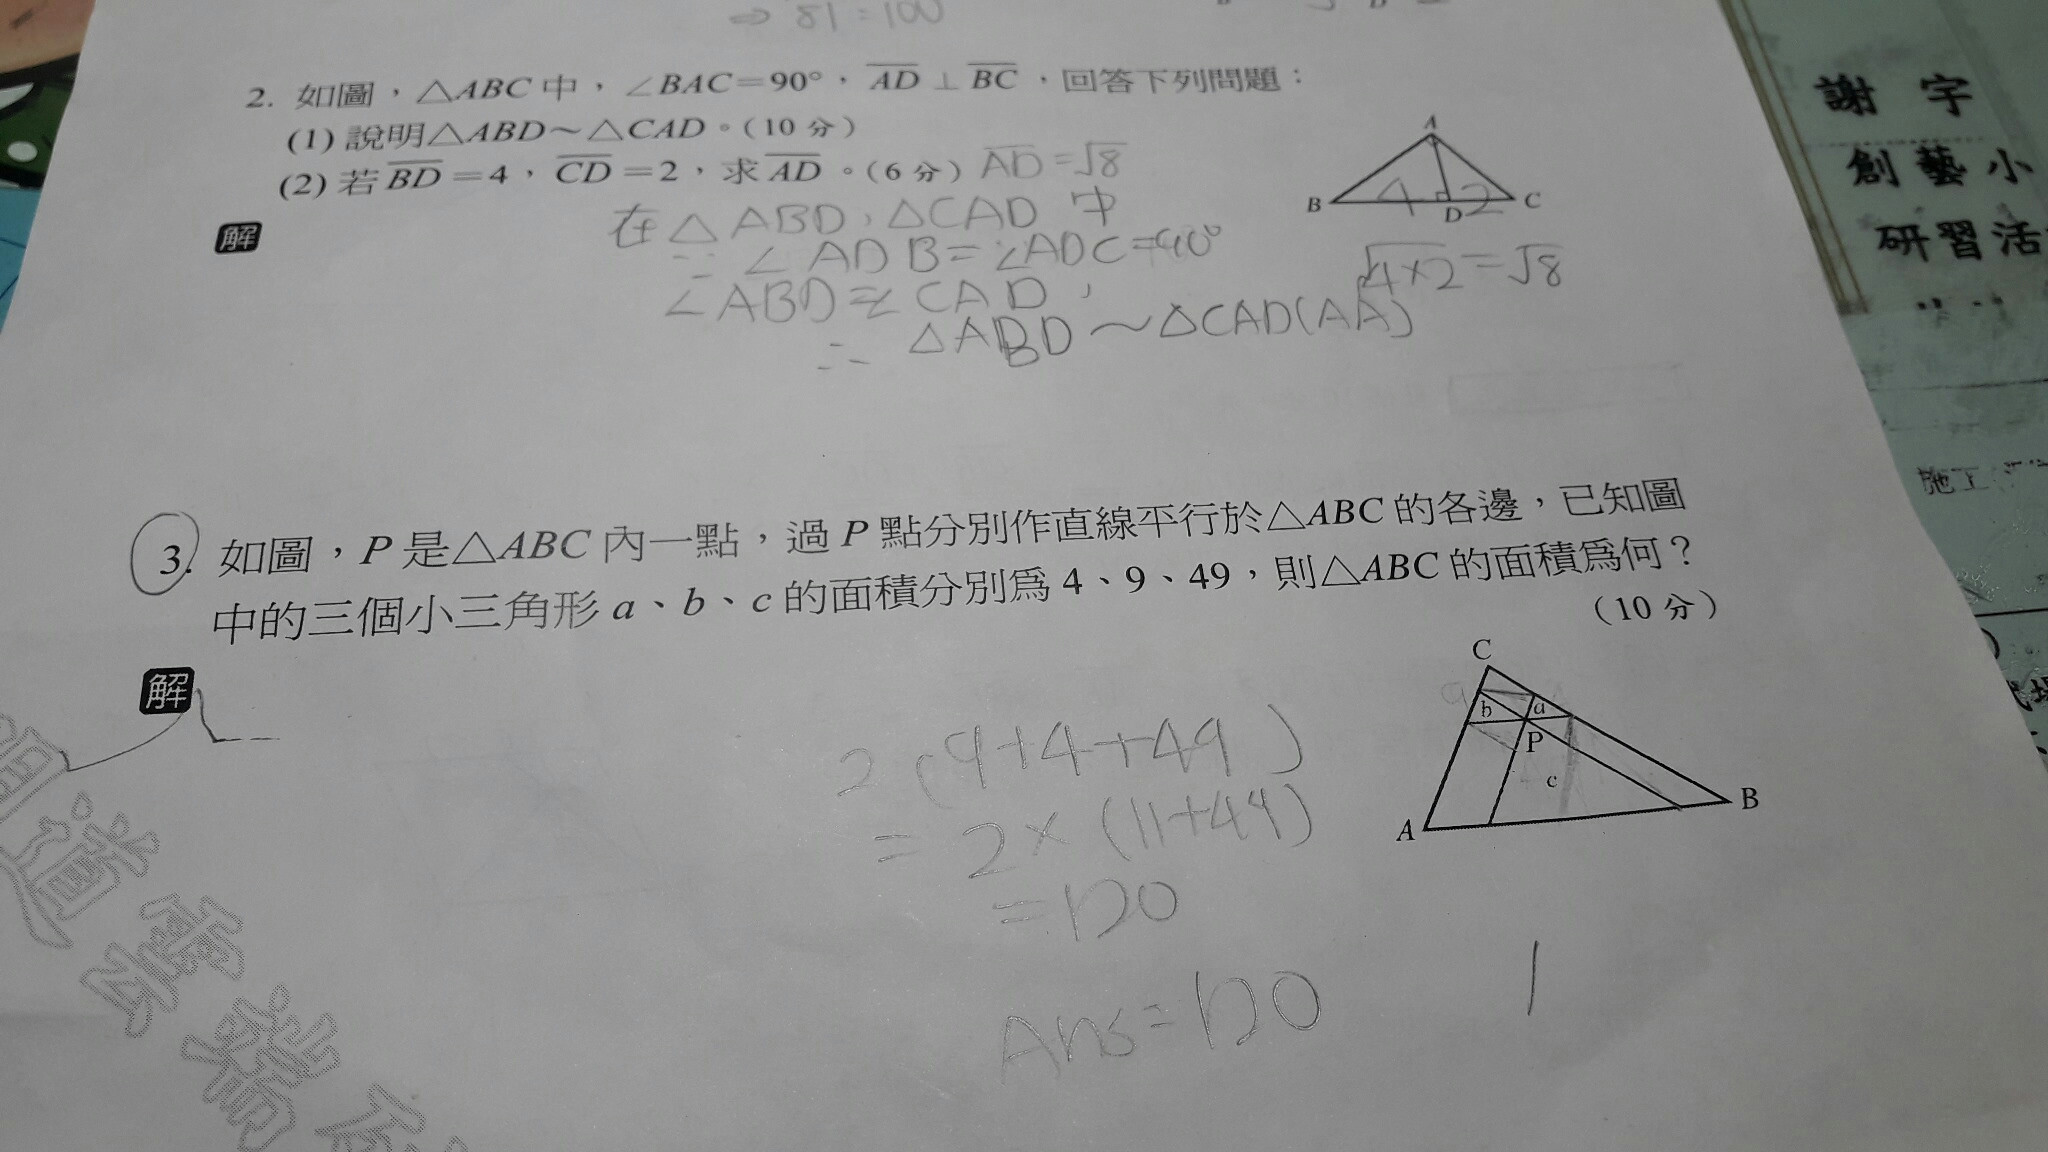 ⇒ 81=100
2. 如圖，△ABC 中，∠BAC=90°，AD⊥BC，回答下列問題：
(1) 說明△ABD～△CAD。(10 分)
(2) 若BD=4，CD=2，求AD。(6 分) AD=√8
A
B 4 D 2 C
√4×2=√8
解
在△ABD，△CAD 中
∵ ∠ADB=∠ADC=90°
∠ABD=∠CAD，
∴ △ABD～△CAD(AA)
3. 如圖，P 是△ABC 內一點，過 P 點分別作直線平行於△ABC 的各邊，已知圖
中的三個小三角形 a、b、c 的面積分別為 4、9、49，則△ABC 的面積為何？
(10 分)
解
C
b a
P
c
A B
2(9+4+49)
=2×(11+49)
=120
Ans=120
明道雲端
謝宇
創藝小
研習活
施工